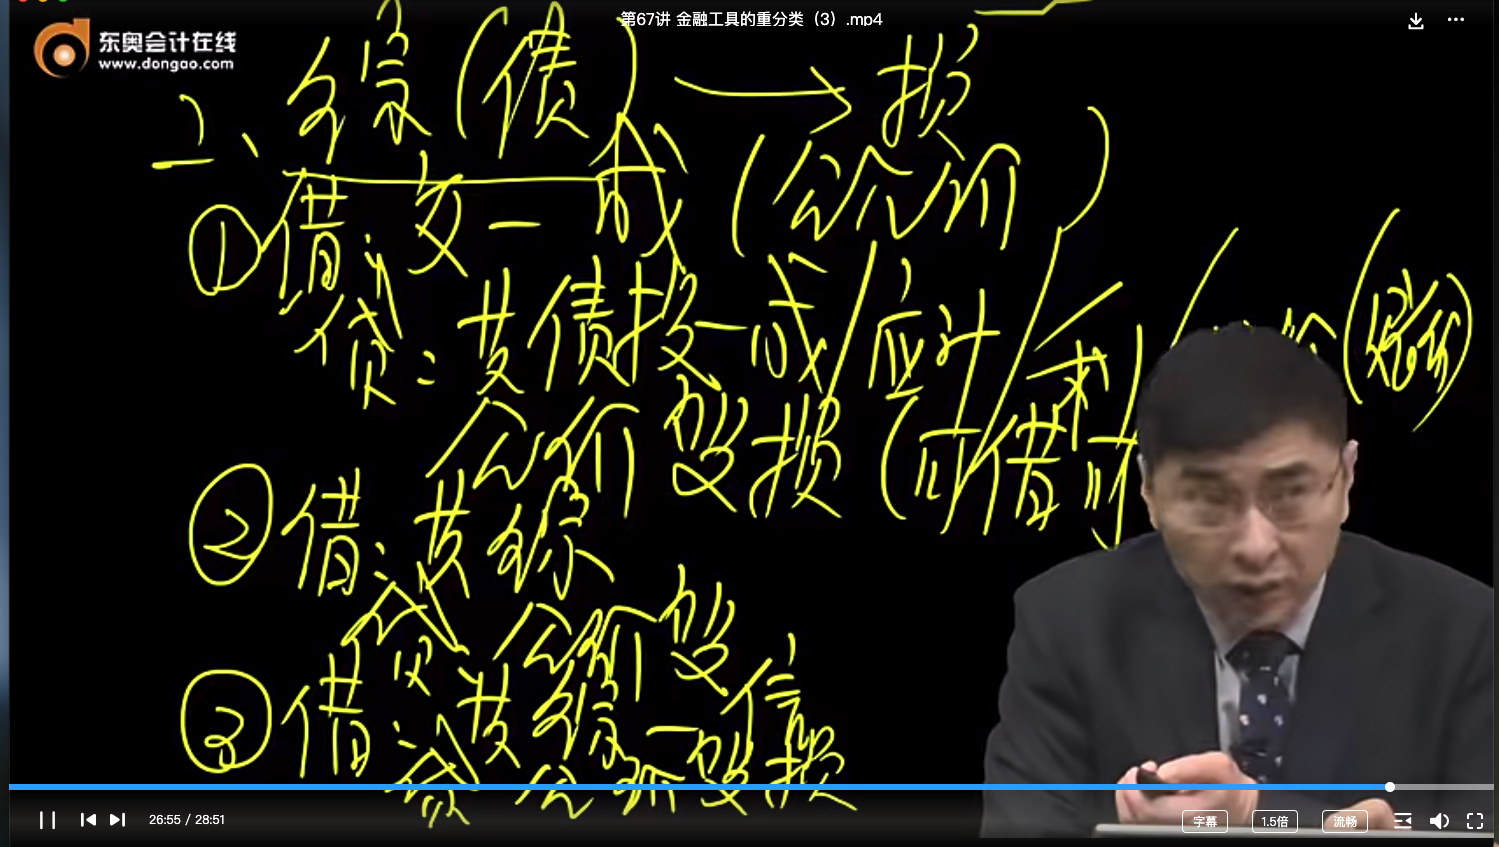 第67讲 金融工具的重分类（3）.mp4
东奥会计在线
www.dongao.com
二、综（债）→损
①借：交一成（公允价）
贷：其债投一成/应计/利/
公价变损（或借对
②借：其综
贷：公价变
③借：其综一信
贷：公价变损
26:55 / 28:51
字幕
1.5倍
流畅